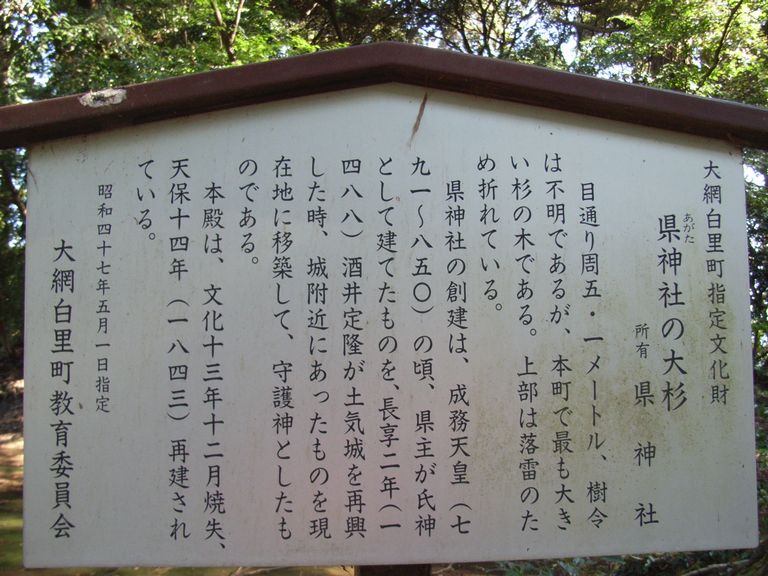 大網白里町指定文化財
県神社の大杉
あがた
所有 県神社
目通り周五・一メートル、樹令
は不明であるが、本町で最も大き
い杉の木である。上部は落雷のた
め折れている。
県神社の創建は、成務天皇(七
九一~八五〇)の頃、県主が氏神
として建てたものを、長享二年(一
四八八)酒井定隆が土気城を再興
した時、城附近にあったものを現
在地に移築して、守護神としたも
のである。
本殿は、文化十三年十二月焼失、
天保十四年(一八四三)再建され
ている。
昭和四十七年五月一日指定
大網白里町教育委員会